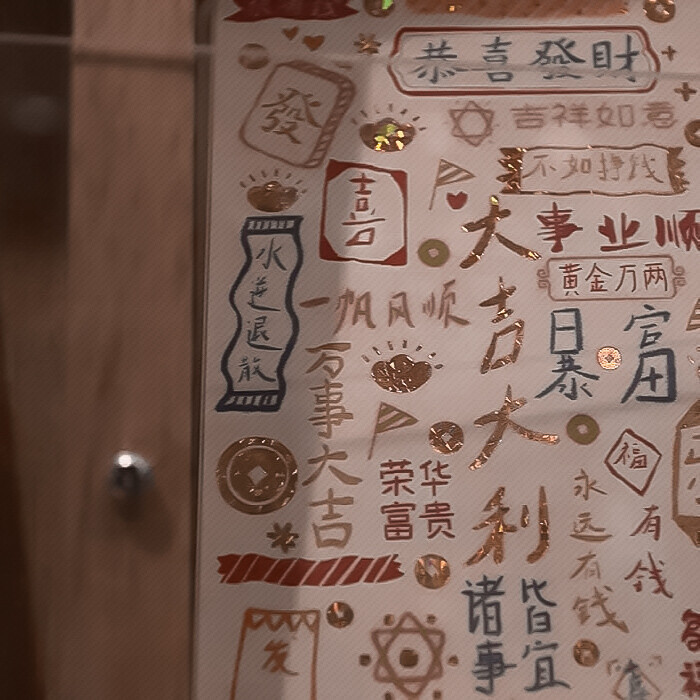 恭喜發財
發
吉祥如意
不如挣钱
喜
大吉大利
事业顺
水逆退散
黄金万两
一帆风顺
暴富
万事大吉
福
荣华
富贵
永远有钱
有钱
诸事皆宜
发